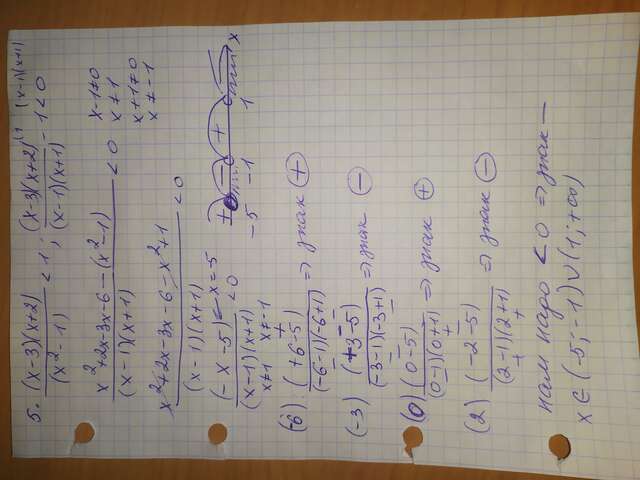 5. (x-3)(x+2)/(x²-1) < 1 ; (x-3)(x+2)/(x-1)(x+1) - 1 < 0
x²+2x-3x-6-(x²-1)/(x-1)(x+1) < 0
x-1≠0
x≠1
x+1≠0
x≠-1
x²+2x-3x-6-x²+1/(x-1)(x+1) < 0
(-x-5)/(x-1)(x+1) < 0
-x=5
x≠1 x≠-1
+ - + -
-5 -1 1 x
(-6): (+6-5)/(-6-1)(-6+1) ⇒ знак +
(-3) (+3-5)/(-3-1)(-3+1) ⇒ знак -
(0) (0-5)/(0-1)(0+1) ⇒ знак +
(2) (-2-5)/(2-1)(2+1) ⇒ знак -
нам надо < 0 ⇒ знак -
x ∈ (-5; -1) ∪ (1; +∞)